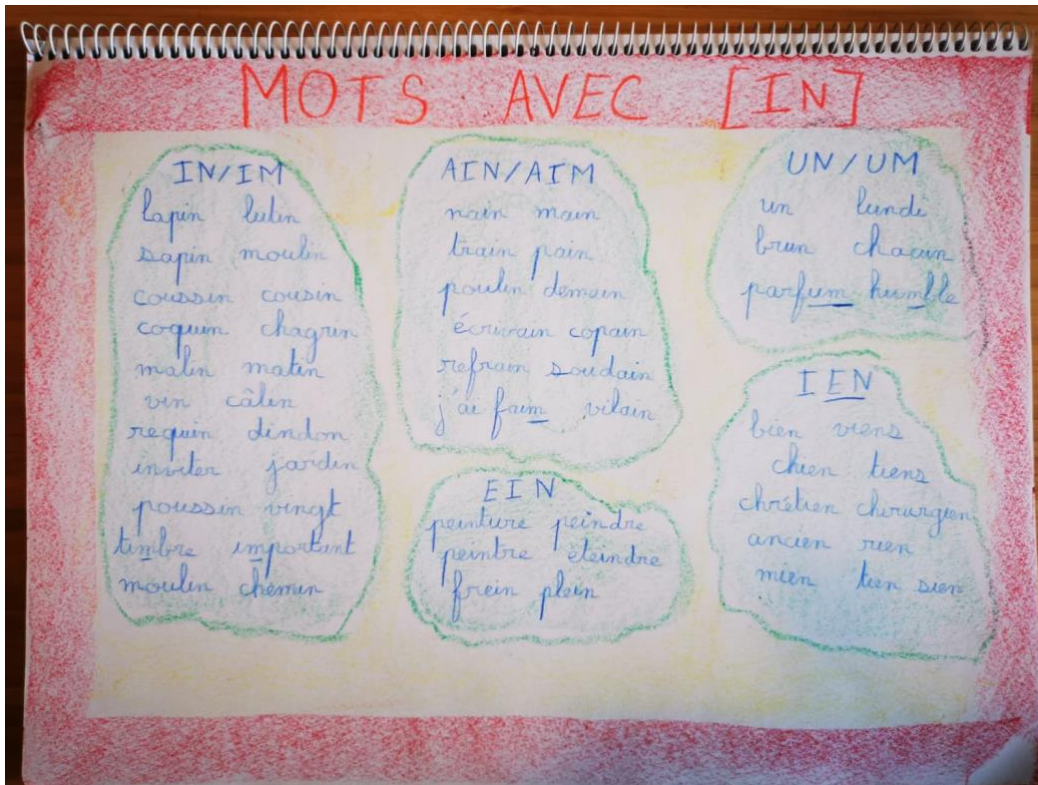 MOTS AVEC [IN]
IN/IM
lapin lutin
sapin moulin
coussin cousin
coquin chagrin
malin matin
vin câlin
requin dindon
inviter jardin
poussin vingt
timbre important
moulin chemin
AIN/AIM
nain main
train pain
poulin demain
écrivain copain
refrain soudain
j'ai faim vilain
EIN
peinture peindre
peintre éteindre
frein plein
UN/UM
un lundi
brun chacun
parfum humble
IEN
bien viens
chien tiens
chrétien chirurgien
ancien rien
mien tien sien